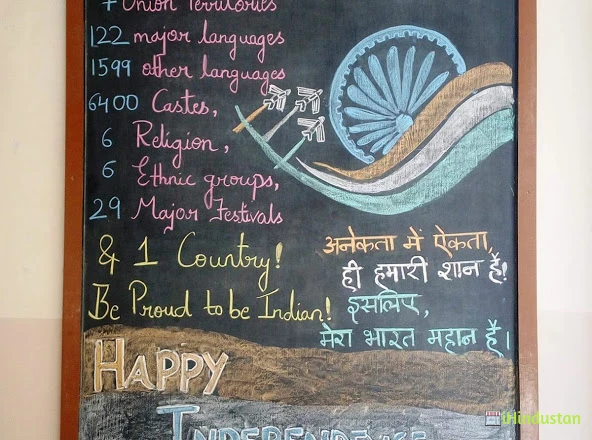 7 Union Territories
122 major languages
1599 other languages
6400 Castes,
6 Religion,
6 Ethnic groups,
29 Major Festivals
& 1 Country!
Be Proud to be Indian!
अनेकता में ऐकता,
ही हमारी शान है!
इसलिए,
मेरा भारत महान है।
HAPPY
INDEPENDENCE
iHindustan